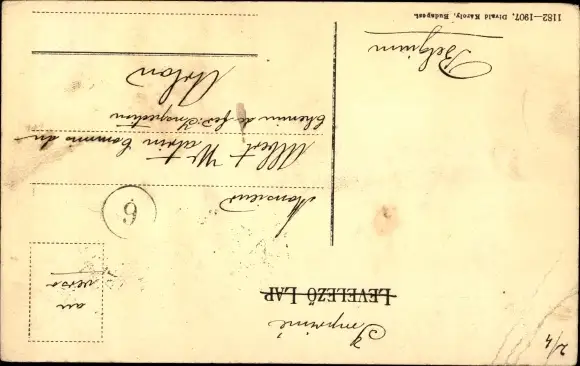 Imprimé
LEVELEZŐ LAP
au
verso
6
Monsieur
Albert Watrin Commis du
Chemin de fer: Inspection
Arlon
Belgium
2/4
1182—1907, Divald Károly, Budapest.